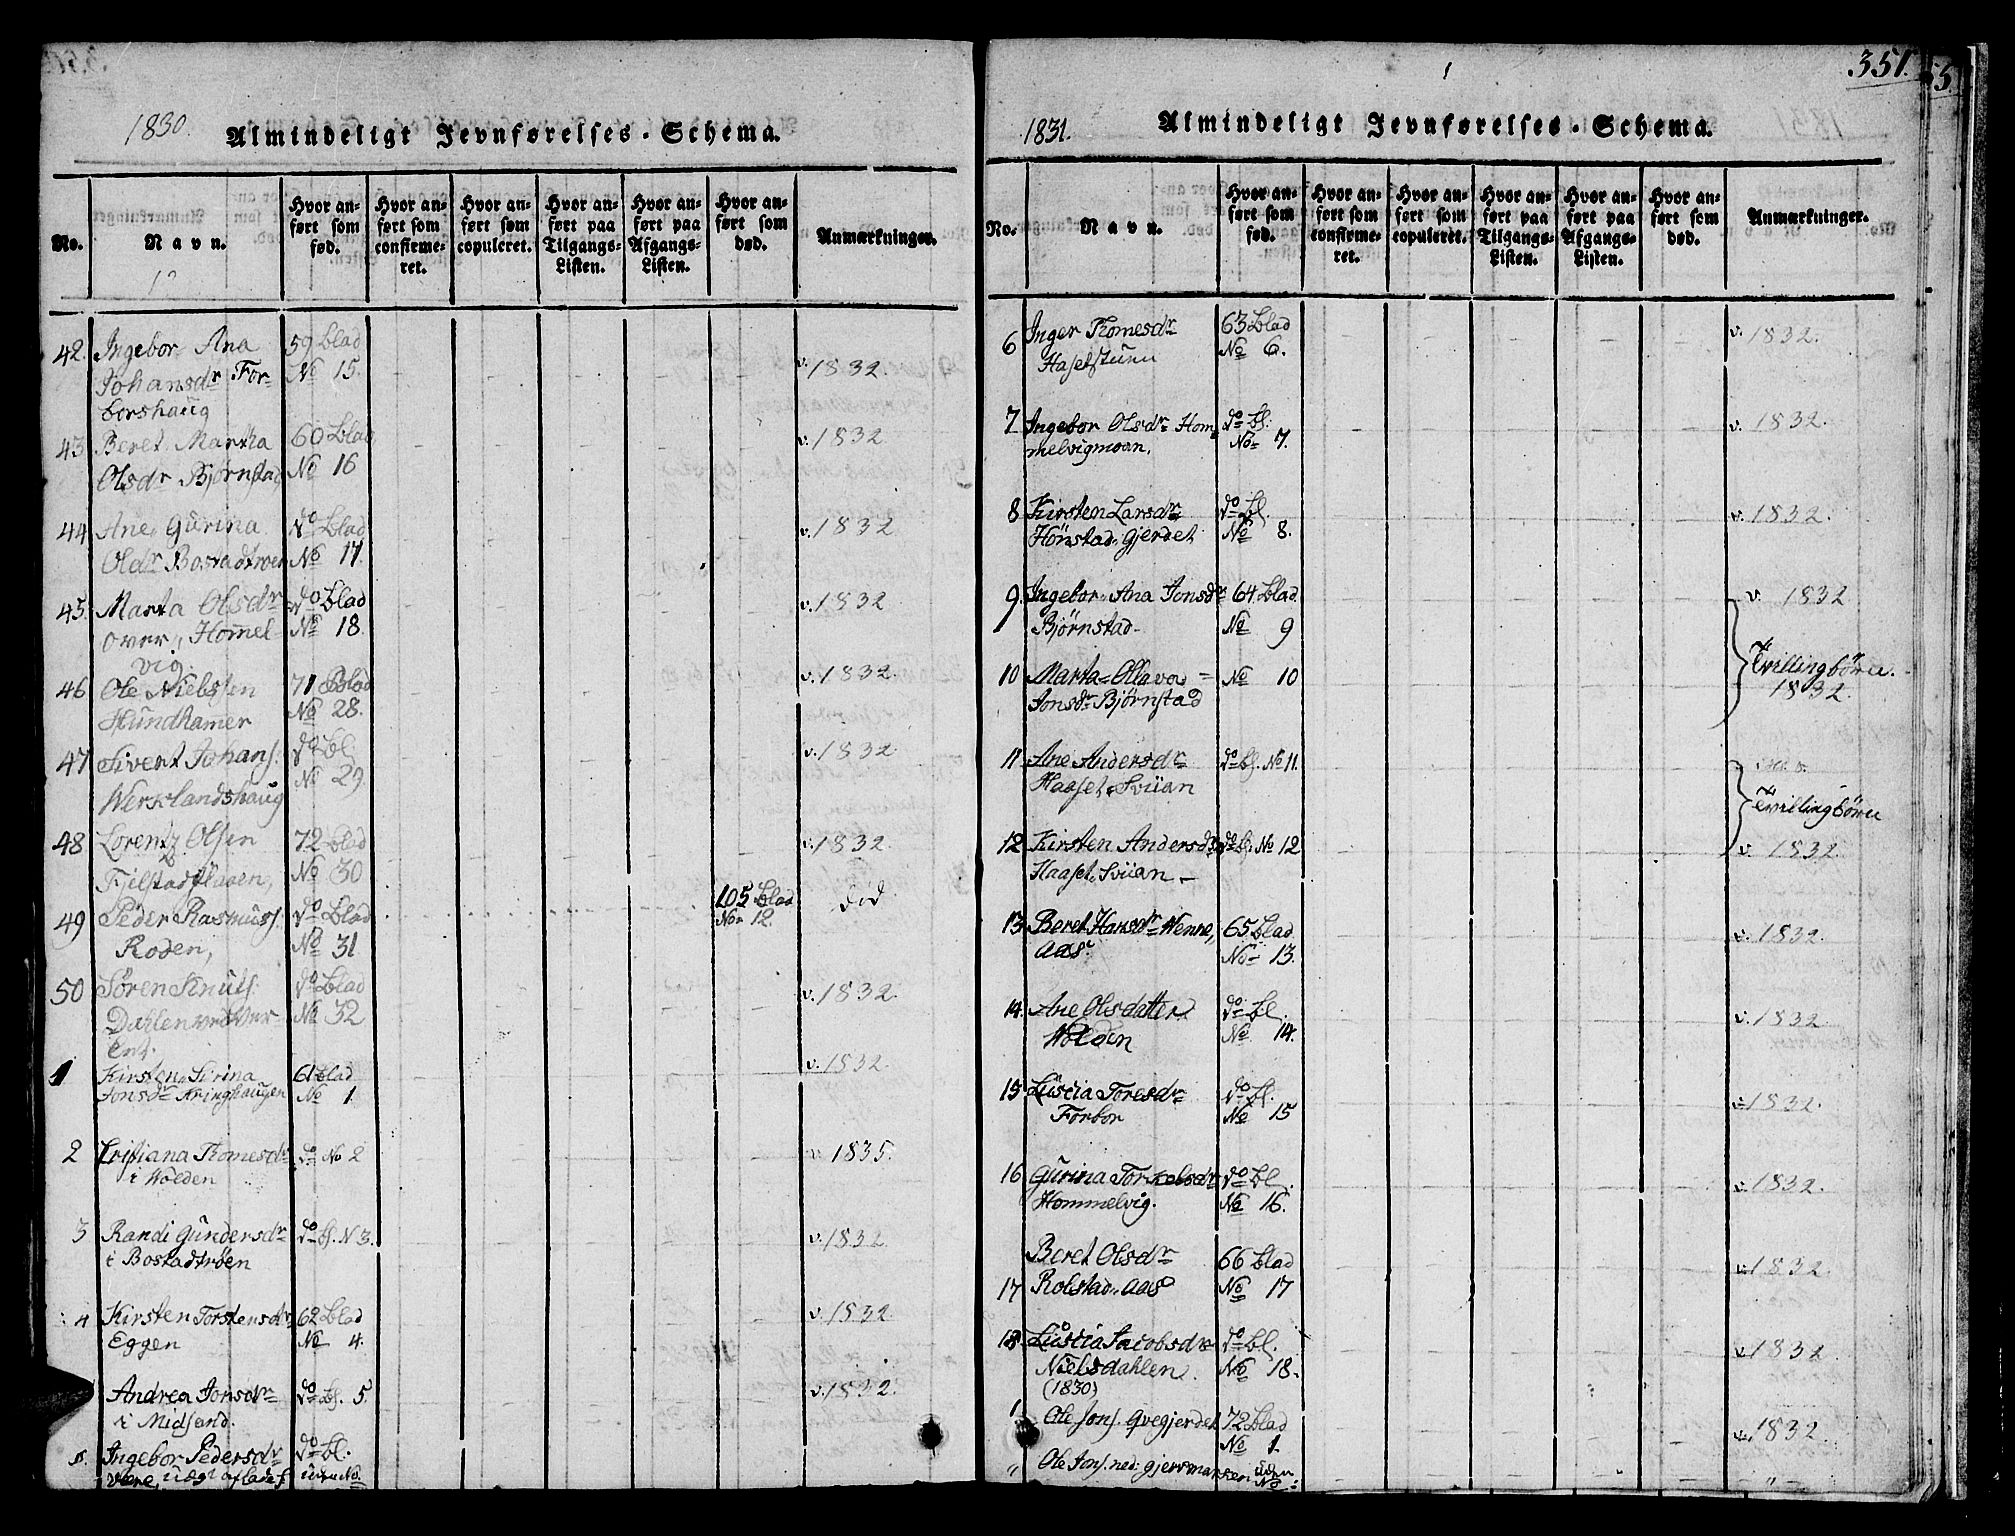 1830.
Almindeligt Jevnførelses-Schema.
No.
Navn.
Hvor anført som fød.
Hvor anført som confirmeret.
Hvor anført som copuleret.
Hvor anført paa Tilgangs-Listen.
Hvor anført paa Afgangs-Listen.
Hvor anført som død.
Anmærkninger.
42. Ingebor Ana 59 blad
Johansdr For- No 15. v. 1832.
borshaug
43 Beret Martha 60 blad v. 1832
Olsdr Bjørnstad No 16
44 Ane Gurina do blad v. 1832
Olsdr Bostadtrøen No 17.
45. Marta Olsdr do blad v. 1832
over, Homel- No 18.
vig.
46 Ole Nielssen 71 Blad v. 1832.
Hundhamer No 28.
47 Sivert Johans. do bl. v. 1832
Werklandshaug No 29
48 Lorentz Olsen 72 blad v. 1832
No 30
49 Peder Rasmuss. do blad 105 blad død
Roden, No 31 No 12.
50 Søren Knuts. do blad v. 1832.
No 32
1 Kirsten Sirina 61 blad v. 1832
Jonsdr Kringhaugen No 1
2 Cristiana Thomesdr do No 2 v. 1835.
i Wolden
3 Randi Gundersdr do bl. N 3. v. 1832
i Bostadtrøen
4 Kirsten Torstensdr 62 blad v. 1832
Eggen No 4.
Andrea Jonsdr do bl. 5. v. 1832.
i Midsand.
Ingebor Pedersdr do bl.
351.
1831.
Almindeligt Jevnførelses-Schema.
No.
Navn.
Hvor anført som fød.
Hvor anført som confirmeret.
Hvor anført som copuleret.
Hvor anført paa Tilgangs-Listen.
Hvor anført paa Afgangs-Listen.
Hvor anført som død.
Anmærkninger.
6 Inger Thomesdr 63 blad v. 1832.
No 6.
7 Ingebor Olsdr Hom- do bl. v. 1832.
melvigmoan. No 7.
8 Kirsten Larsdr do bl. v. 1832.
Hønstad-gjerdet No 8.
9. Ingebor Ana Jonsdr 64 blad v. 1832
Bjørnstad No 9
10 Marta Ollava No 10 Tvillingbørn.
Jonsdr Bjørnstad 1832.
11 Ane Andersdr do bl. No 11.
Haaset Sviian Tvillingbørn
12 Kirsten Andersdr do bl. No 12 v. 1832.
Haaset Sviian
13 Beret Hansdr Wenne, 65 blad v. 1832.
Aas. No 13.
14. Ane Olsdatter do bl. v. 1832
Wolden No 14.
15 Luscia Toresdr do bl. v. 1832.
Forbor No 15
16 Gurina Torkelsdr do bl. v. 1832.
Hommelvig. No 16.
Beret Olsdr 66 blad v. 1832.
17 Rolstad Aas No 17
18 Luscia Jacobsdr do bl. v. 1832
Nielsdahlen No 18.
(1830)
1 Ole Jons. Qvegjerdet 72 blad v. 1832
No 1
" Ole Jons. ned. uden "
No